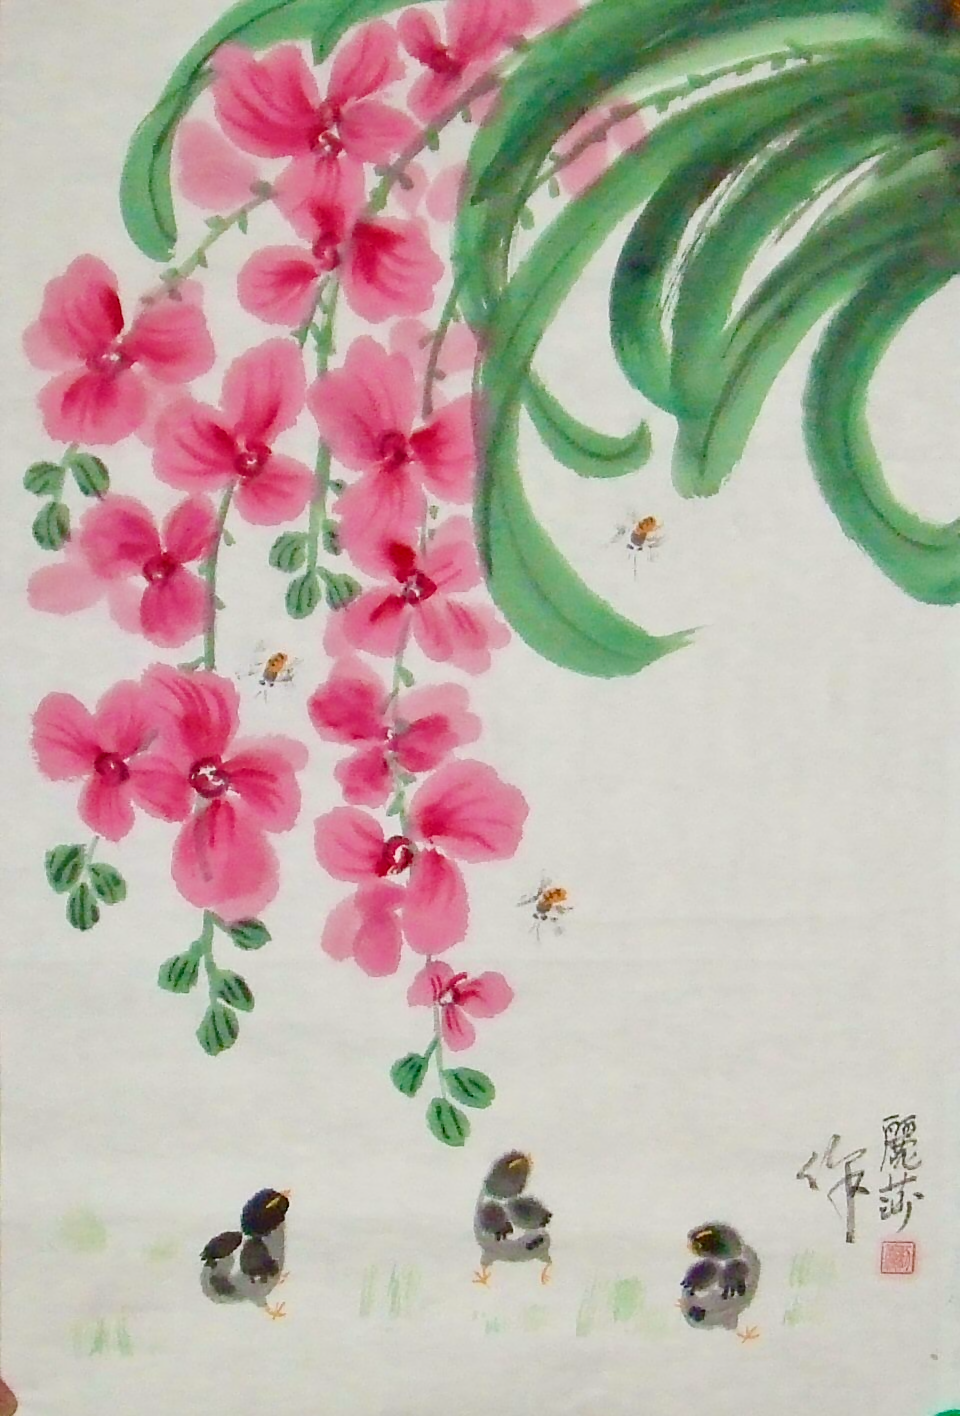 麗莎
作